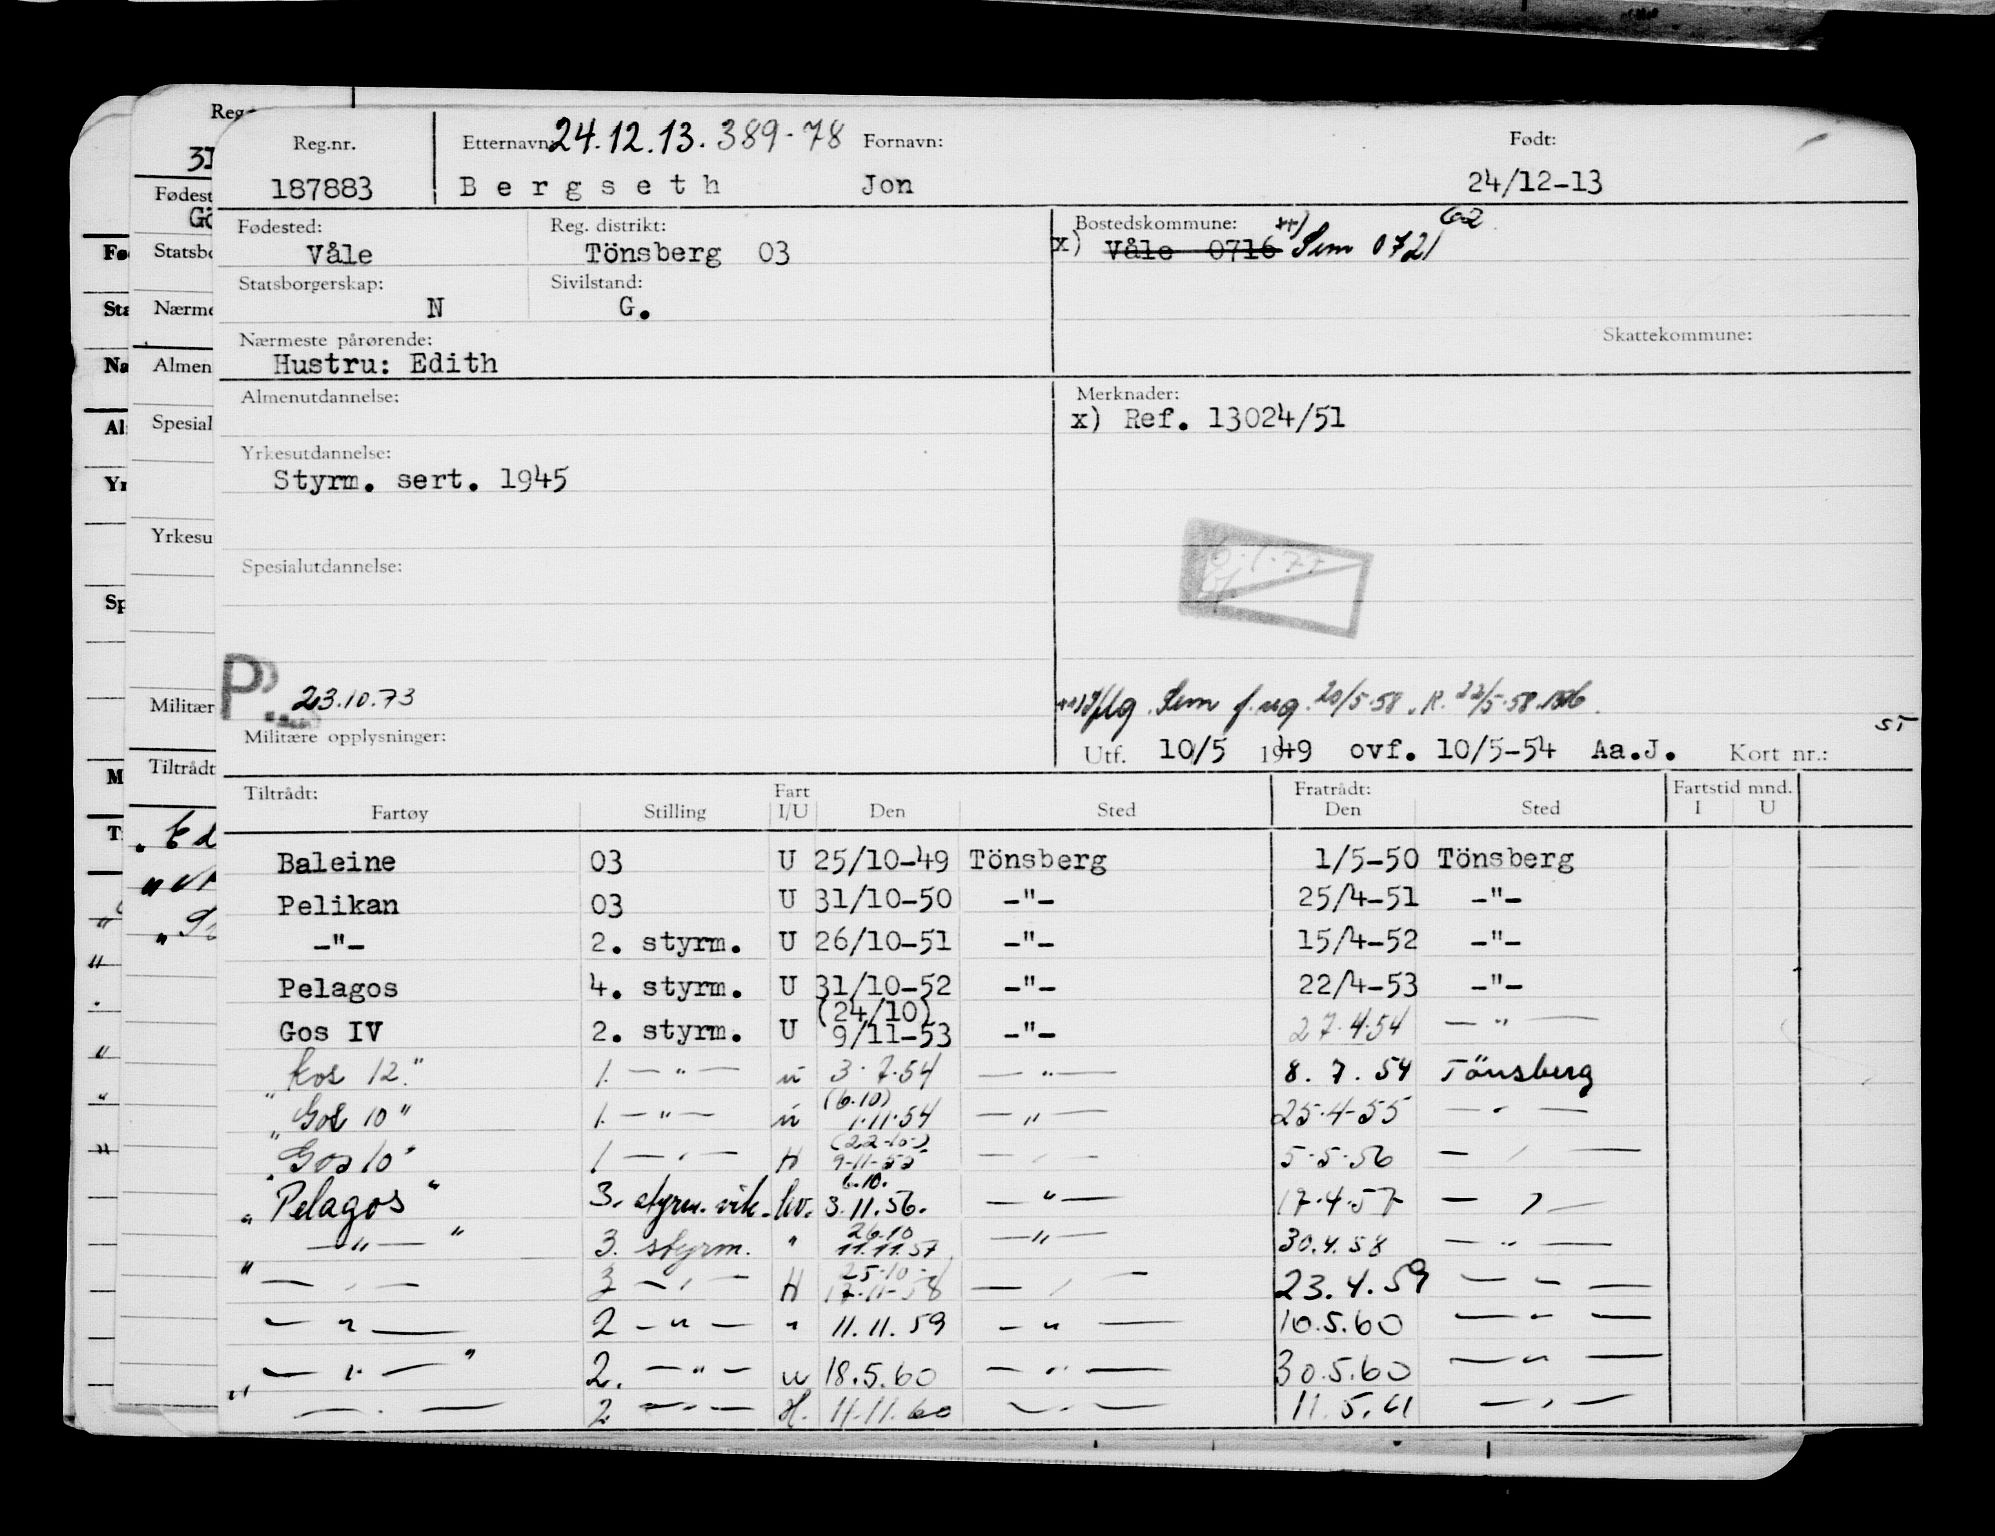 Reg.nr. Etternavn: 24.12.13. 389-78 Fornavn: Født:
187883 Bergseth Jon 24/12-13
Fødested: Reg. distrikt: Bostedskommune: xx) 62
Våle Tönsberg 03 x) Våle 0716 Sem 0721
Statsborgerskap: Sivilstand:
N G.
Nærmeste pårørende: Skattekommune:
Hustru: Edith
Almenutdannelse: Merknader:
x) Ref. 13024/51
Yrkesutdannelse:
Styrm. sert. 1945
Spesialutdannelse:
P. 23.10.73
Sem f. ug. 20/5-58. R. 22/5-58.
ST
Militære opplysninger: Utf. 10/5 1949 ovf. 10/5-54 Aa.J. Kort nr.:
Tiltrådt: Fart Fratrådt: Fartstid mnd.
Fartøy Stilling I/U Den Sted Den Sted I U
Baleine 03 U 25/10-49 Tönsberg 1/5-50 Tönsberg
Pelikan 03 U 31/10-50 -"- 25/4-51 -"-
-"- 2. styrm. U 26/10-51 -"- 15/4-52 -"-
Pelagos 4. styrm. U 31/10-52 -"- 22/4-53 -"-
(24/10)
Gos IV 2. styrm. U 9/11-53 -"- 27.4.54 -"-
"Kos 12." 1. -"- u 3.7.54 -"- 8.7.54 Tönsberg
(6.10)
"Gos 10" 1. -"- u 1.11.54 -"- 25.4-55 -"-
(22-10-)
"Gos 10" 1 -"- H 9-11-55 -"- 5.5.56 -"-
6.10.
"Pelagos" 3. styrm. vik. hv. 3.11.56. -"- 17.4.57 -"-
26.10
-"- " 3. styrm. " 11.11.57 -"- 30.4.58 -"-
25-10-
" -"- 3 -"- H 17-11-58 -"- 23.4.59 -"-
-"- 2 -"- " 11.11.59 -"- 10.5.60 -"-
-"- " 2. -"- u 18.5.60 -"- 30.5.60 -"-
" -"- 2 -"- H. 11.11.60 -"- 11.5.61 -"-